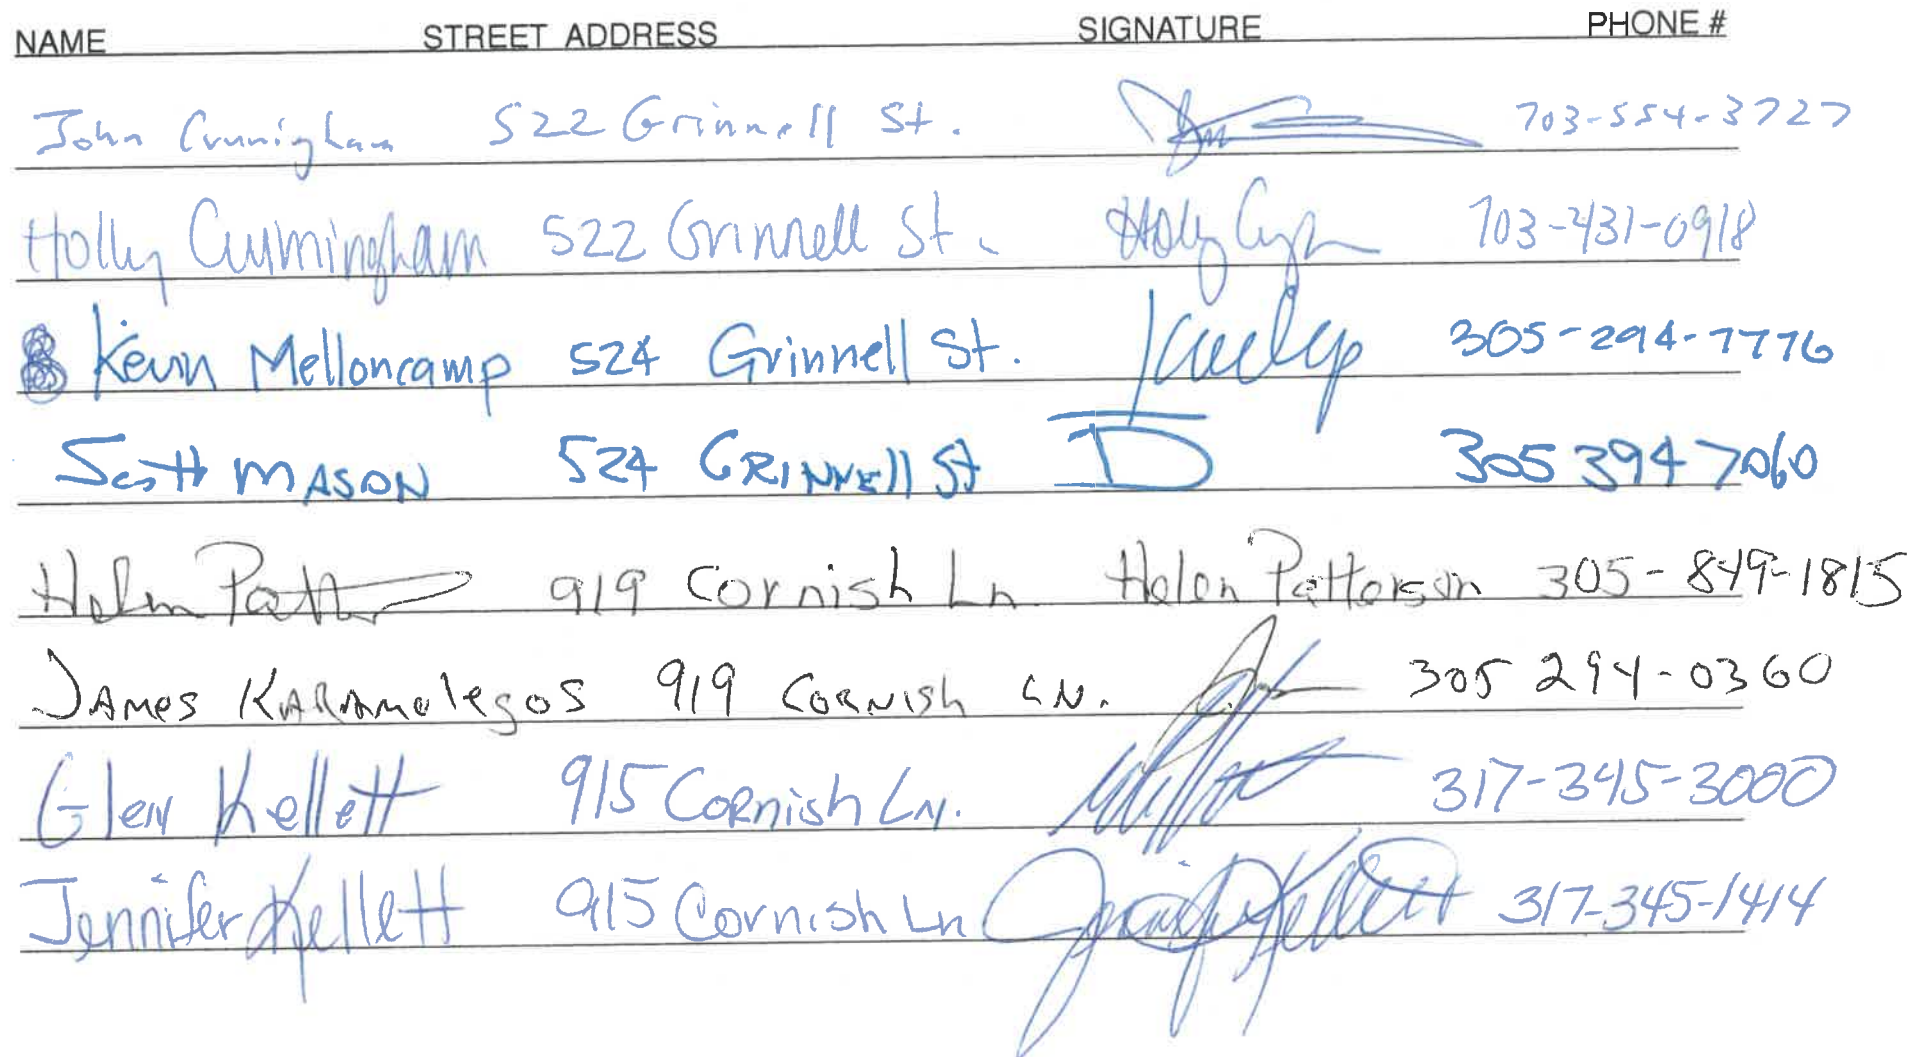 NAME STREET ADDRESS SIGNATURE PHONE #
John Cunnigham 522 Grinnell St. 703-554-3727
Holly Cunningham 522 Grinnell St. 703-431-0918
Kevin Melloncamp 524 Grinnell St. 305-294-7776
Scott MASON 524 GRINNEll St 305 394 7060
Helen Patt 919 Cornish Ln. Helen Patterson 305-849-1815
JAMES KARAMOlegos 919 CORNISH LN. 305 294-0360
Glen Kellett 915 Cornish Ln. 317-345-3000
Jennifer Kellett 915 Cornish Ln Jennifer Kellett 317-345-1414